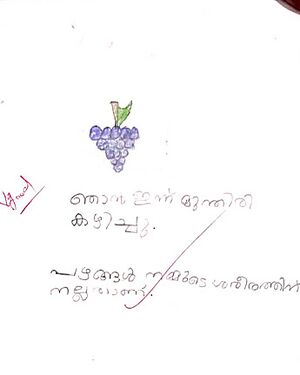 ഞാൻ ഇന്ന് മുന്തിരി
കഴിച്ചു.
പഴങ്ങൾ നമ്മുടെ ശരീരത്തിന്
നല്ലതാണ്.